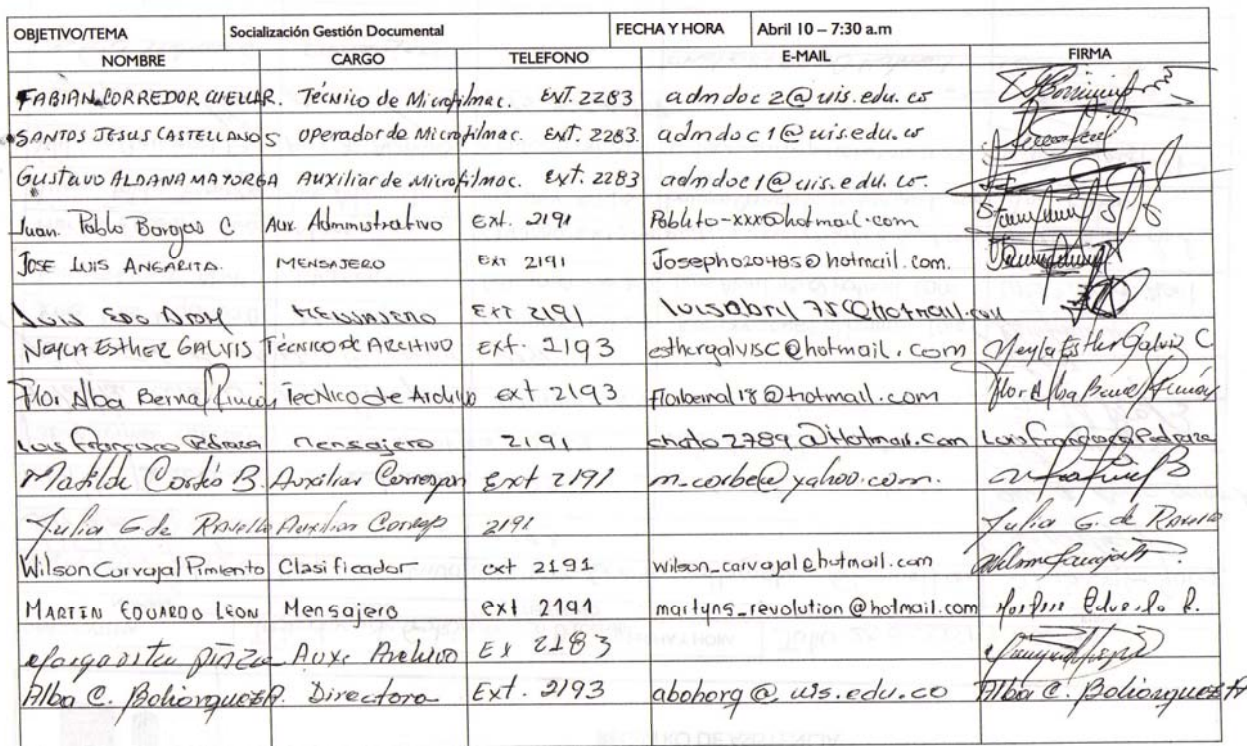 OBJETIVO/TEMA Socialización Gestión Documental FECHA Y HORA Abril 10 – 7:30 a.m
NOMBRE CARGO TELEFONO E-MAIL FIRMA
FABIAN CORREDOR CUELLAR. Técnico de Microfilmac. EXT. 2283 admdoc2@uis.edu.co
SANTOS JESUS CASTELLANOS operador de Microfilmac. EXT. 2283. admdoc1@uis.edu.co
GUSTAVO ALDANA MAYORGA Auxiliar de Microfilmac. Ext. 2283 admdoc1@uis.edu.co.
Juan Pablo Borojas C Aux Administrativo Ext. 2191 Pablito-xxx@hotmail.com
JOSE LUIS ANGARITA. MENSAJERO EXT 2191 Joseph020485@hotmail.com.
Luis Edo Abril MENSAJERO EXT 2191 luisabril78@hotmail.com
NEYLA ESTHER GALVIS TÉCNICO DE ARCHIVO Ext. 2193 esthergalvisc@hotmail.com Neyla Esther Galvis C.
Flor Alba Bernal Rincón Tecnico de Archivo ext 2193 florbernal18@hotmail.com Flor Alba Bernal Rincón
Luis Francisco Pedraza mensajero 2191 chato2789@Hotmail.com Luis Francisco Pedraza
Matilde Cortés B. Auxiliar Correspon Ext 2191 m_corbe@yahoo.com.
Julia G de Ravello Auxiliar Corresp 2191 Julia G. de Ravello
Wilson Carvajal Pimiento Clasificador ext 2191 wilson_carvajal@hotmail.com Wilson Carvajal P.
MARTIN EDUARDO LEON Mensajero ext 2191 martyns_revolution@hotmail.com Martin Eduardo L.
Margarita Aux. Archivo Ex 2183
Alba C. Bohorquez A. Directora Ext. 2193 abohorq@uis.edu.co Alba C. Bohorquez A